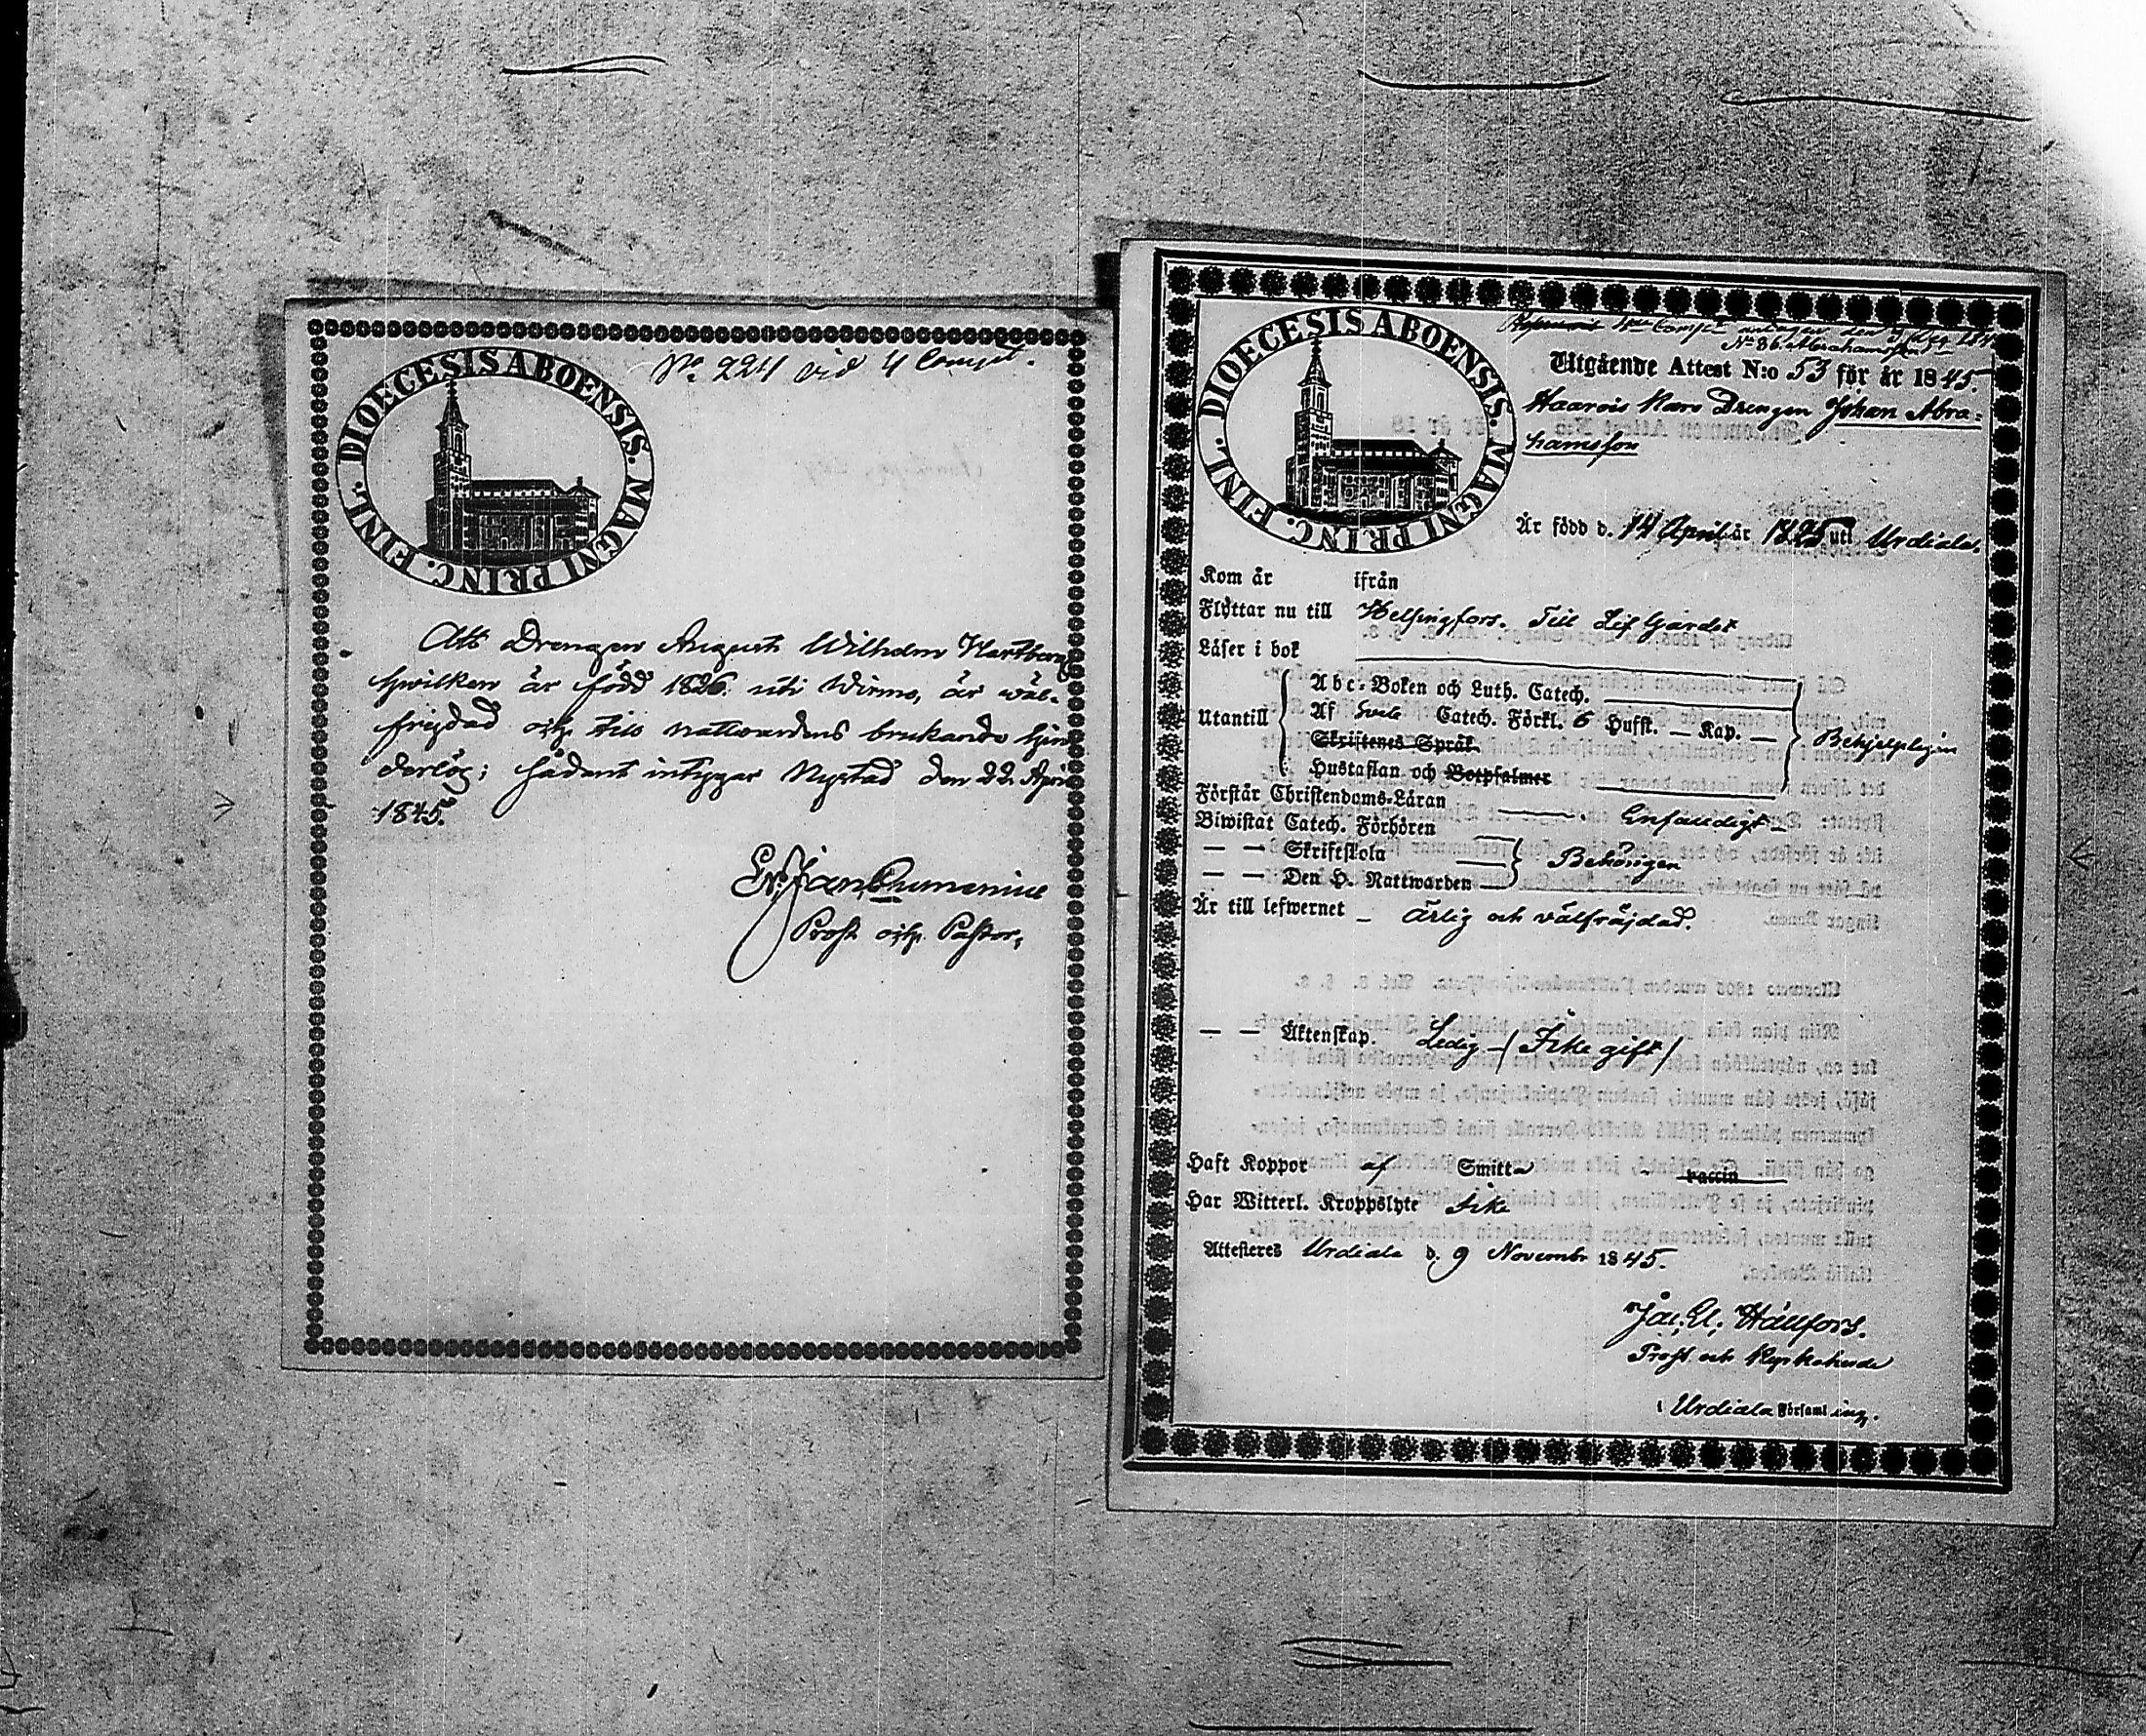 DIOECESIS ABOENSIS. MAGNI PRINC. FINL.
No 224 vid 4 Comp:t.
Att Drengen August Wilhelm Hartberg
hwilken är född 1826. uti Wirmo, är wäl-
frejdad och till nattvardens brukande hin
derlög; sådant intygar Nystad den 22. April
1845.
Prost och Pastor.
DIOECESIS ABOENSIS. MAGNI PRINC. FINL.
Comp:t antagen den
No 86. Abrahamsson
Utgående Attest N:o 53 för år 1845.
Haavois Karo Drengen Johan Abra-
hamsson
Är född d. 14 April år 1825 uti Urdiala.
Kom år ifrån
Flyttar nu till Helsingfors. Till Lif Gardet
Läser i bok
Utantill
Abc-Boken och Luth. Catech.
Af Svebe Catech. Förkl. 6 Hufst. — Kap. —
Skriftenes Språk
Hustaflan och Botpsalmer
Behjelpligen
Förstår Christendoms-Läran Enfaldigt
Biwistat Catech. Förhören
— — Skriftskola Behörigen
— — Den H. Nattwarden
Är till lefwernet – ärlig och välfräjdad.
— — Äktenskap. Ledig – / Icke gift /
Haft Koppor af Smitta vaccin
Har Witterl. Kroppslyte Icke
Attesteres Urdiala d. 9 Novembr 1845.
Jac. El. Hällfors.
Prost och Kyrkoherde
i Urdiala Församling.